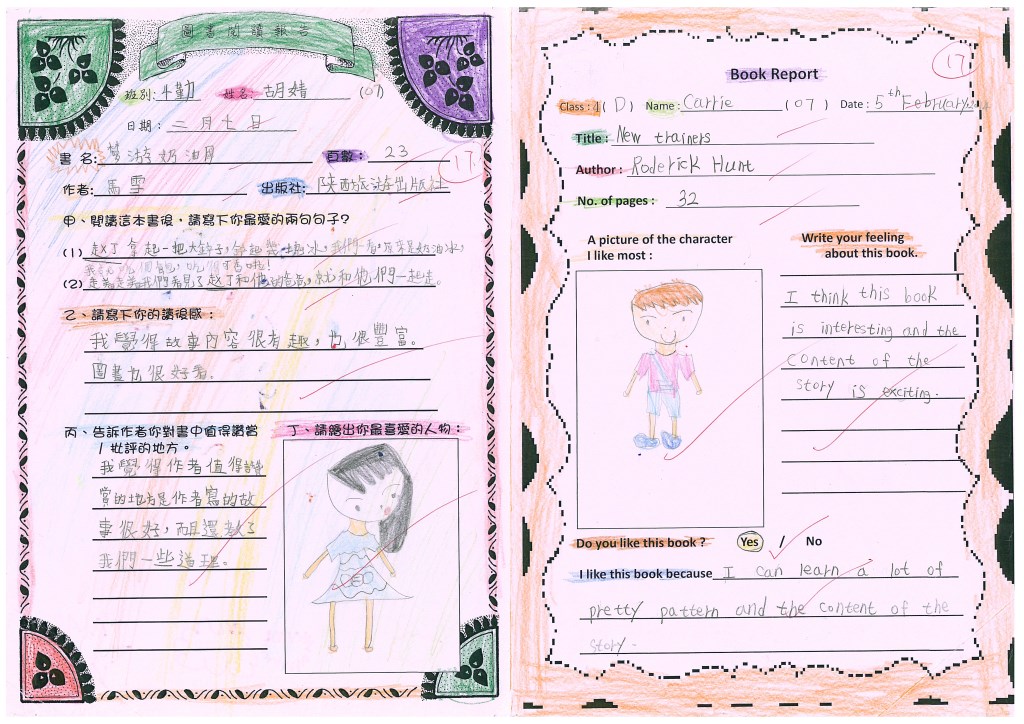 圖書閱讀報告
班別: 4勤 姓名: 胡婧 (07)
日期: 二月七日
書名: 游奶油月 頁數: 23
17
作者: 馬雪 出版社: 陝西旅游出版社
甲、閱讀這本書後，請寫下你最愛的兩句句子?
(1) 趙丁拿起一把大鉗子,
(2) 走着走着我們看見了趙丁和他的爸爸,就和他們一起走。
乙、請寫下你的讀後感：
我覺得故事內容很有趣，也很豐富。
圖畫也很好看。
丙、告訴作者你對書中值得讚賞
/ 批評的地方。
我覺得作者值得讚
賞的地方是作者寫的故
事很好，而且還教了
我們一些道理。
丁、請繪出你最喜愛的人物：
17
Book Report
Class : 4 ( D ) Name : Carrie ( 07 ) Date : 5th February
Title : New trainers
Author : Roderick Hunt
No. of pages : 32
A picture of the character
I like most :
Write your feeling
about this book.
I think this book
is interesting and the
content of the
story is exciting.
Do you like this book ? Yes / No
I like this book because I can learn a lot of
pretty pattern and the content of the
story.